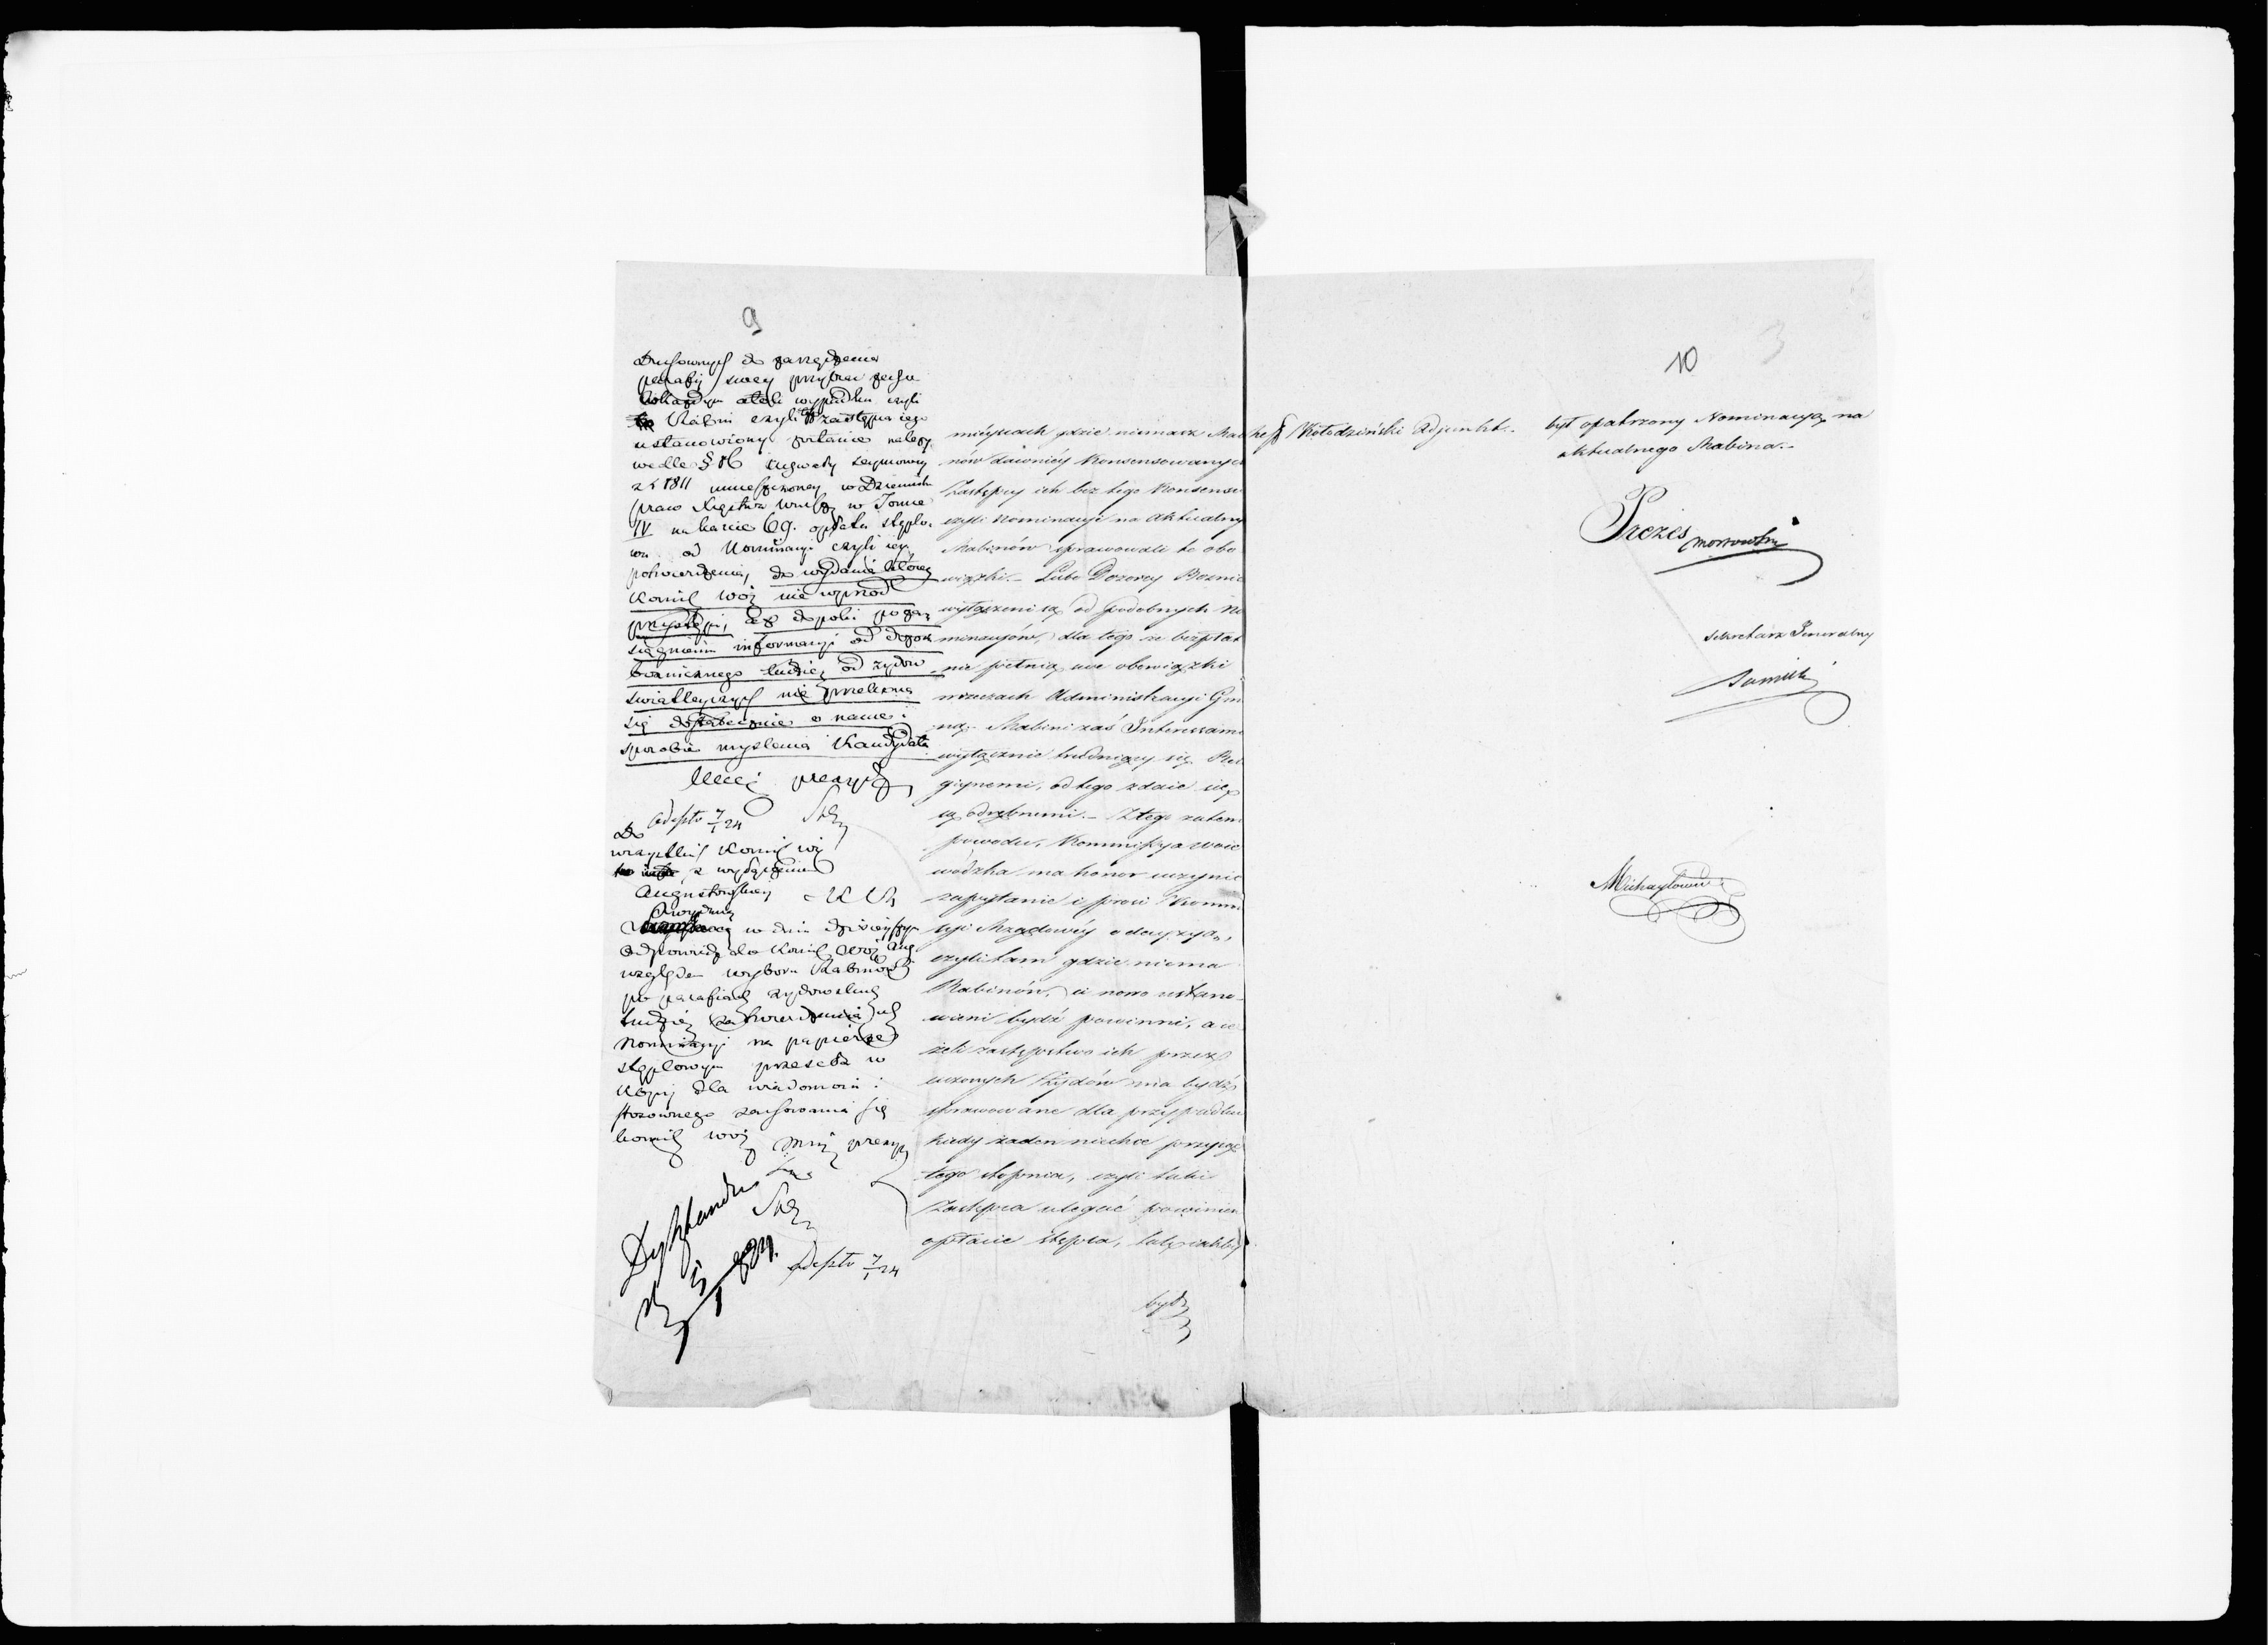 9
Duchownych do zarządzenia
parafij swey przybrać zechce
w każdym atoli wypadku czyli
Rabin czyli zastępca iego
ustanowiony zostanie należy
wedle § 16 uchwały seymowey
z r 1811 umieszczoney w Dzienniku
praw Xięstwa Warsz w Tomie
IV na karcie 69. opłata stęplo-
wa od Nominacyi czyli iey
potwierdzenia, do wydania którey
Kommis Woiź nie wprzód
przystąpi, aż dopóki po za-
siągnieniu informacyi od dozoru
bóżniczego tudzież od żydów
światleyszych nie przekona
się dostatecznie o nauce i
sposobie myślenia Kandydata
adepto 7/1 24
Do
wszystkich Kommis woiź
z wyłączeniem
Augustowskiey
w dniu dzisieyszym
Odpowiedź do Kommis Woiź Aug
względem wyboru Rabinów
po parafiach żydowskich
tudzież zatwierdzenia ich
Nominacyi na papierze
stęplowym przesyła w
Kopij dla wiadomości i
stosownego zachowania się
kommis woiź
adepto 7/1 24
mieyscach gdzie niemasz Ra
nów dawniey Konsensowanych
Zastępcy ich bez tego Konsensu
czyli Nominacyi na Aktualnych
Rabinów sprawowali te obo
wiązki. – Lubo Dozorcy Bożnic
wyłączeni są od podobnych No
minacyów, dla tego że bezpłat
nie pełnią swe obowiązki
w rzeczach Administracyi Gmi
ną – Rabini zaś Interessami
wyłącznie trudniący się Reli
giynemi, od tego zdaie się
są odrębnemi. – Z tego zatem
powodu, Kommissya Woie
wódzka ma honor uczynić
zapytanie i prosi Kommis
syi Rządowey o decyzyą,
czyli tam gdzie niema
Rabinów, ci nowo ustano-
wieni bydź powinni, a ie
żeli zastępstwo ich przez
uczonych Żydów ma bydź
sprawowane dla przypadku
kiedy żaden niechce przyiąć
tego stopnia, czyli taki
Zastępca ulegać powinien
opłacie stępla, tak iakby
bydź
10
3
Kołodziński Adjunkt.
był opatrzony Nominacyą na
aktualnego Rabina. –
Prezes
Sekretarz Jeneralny